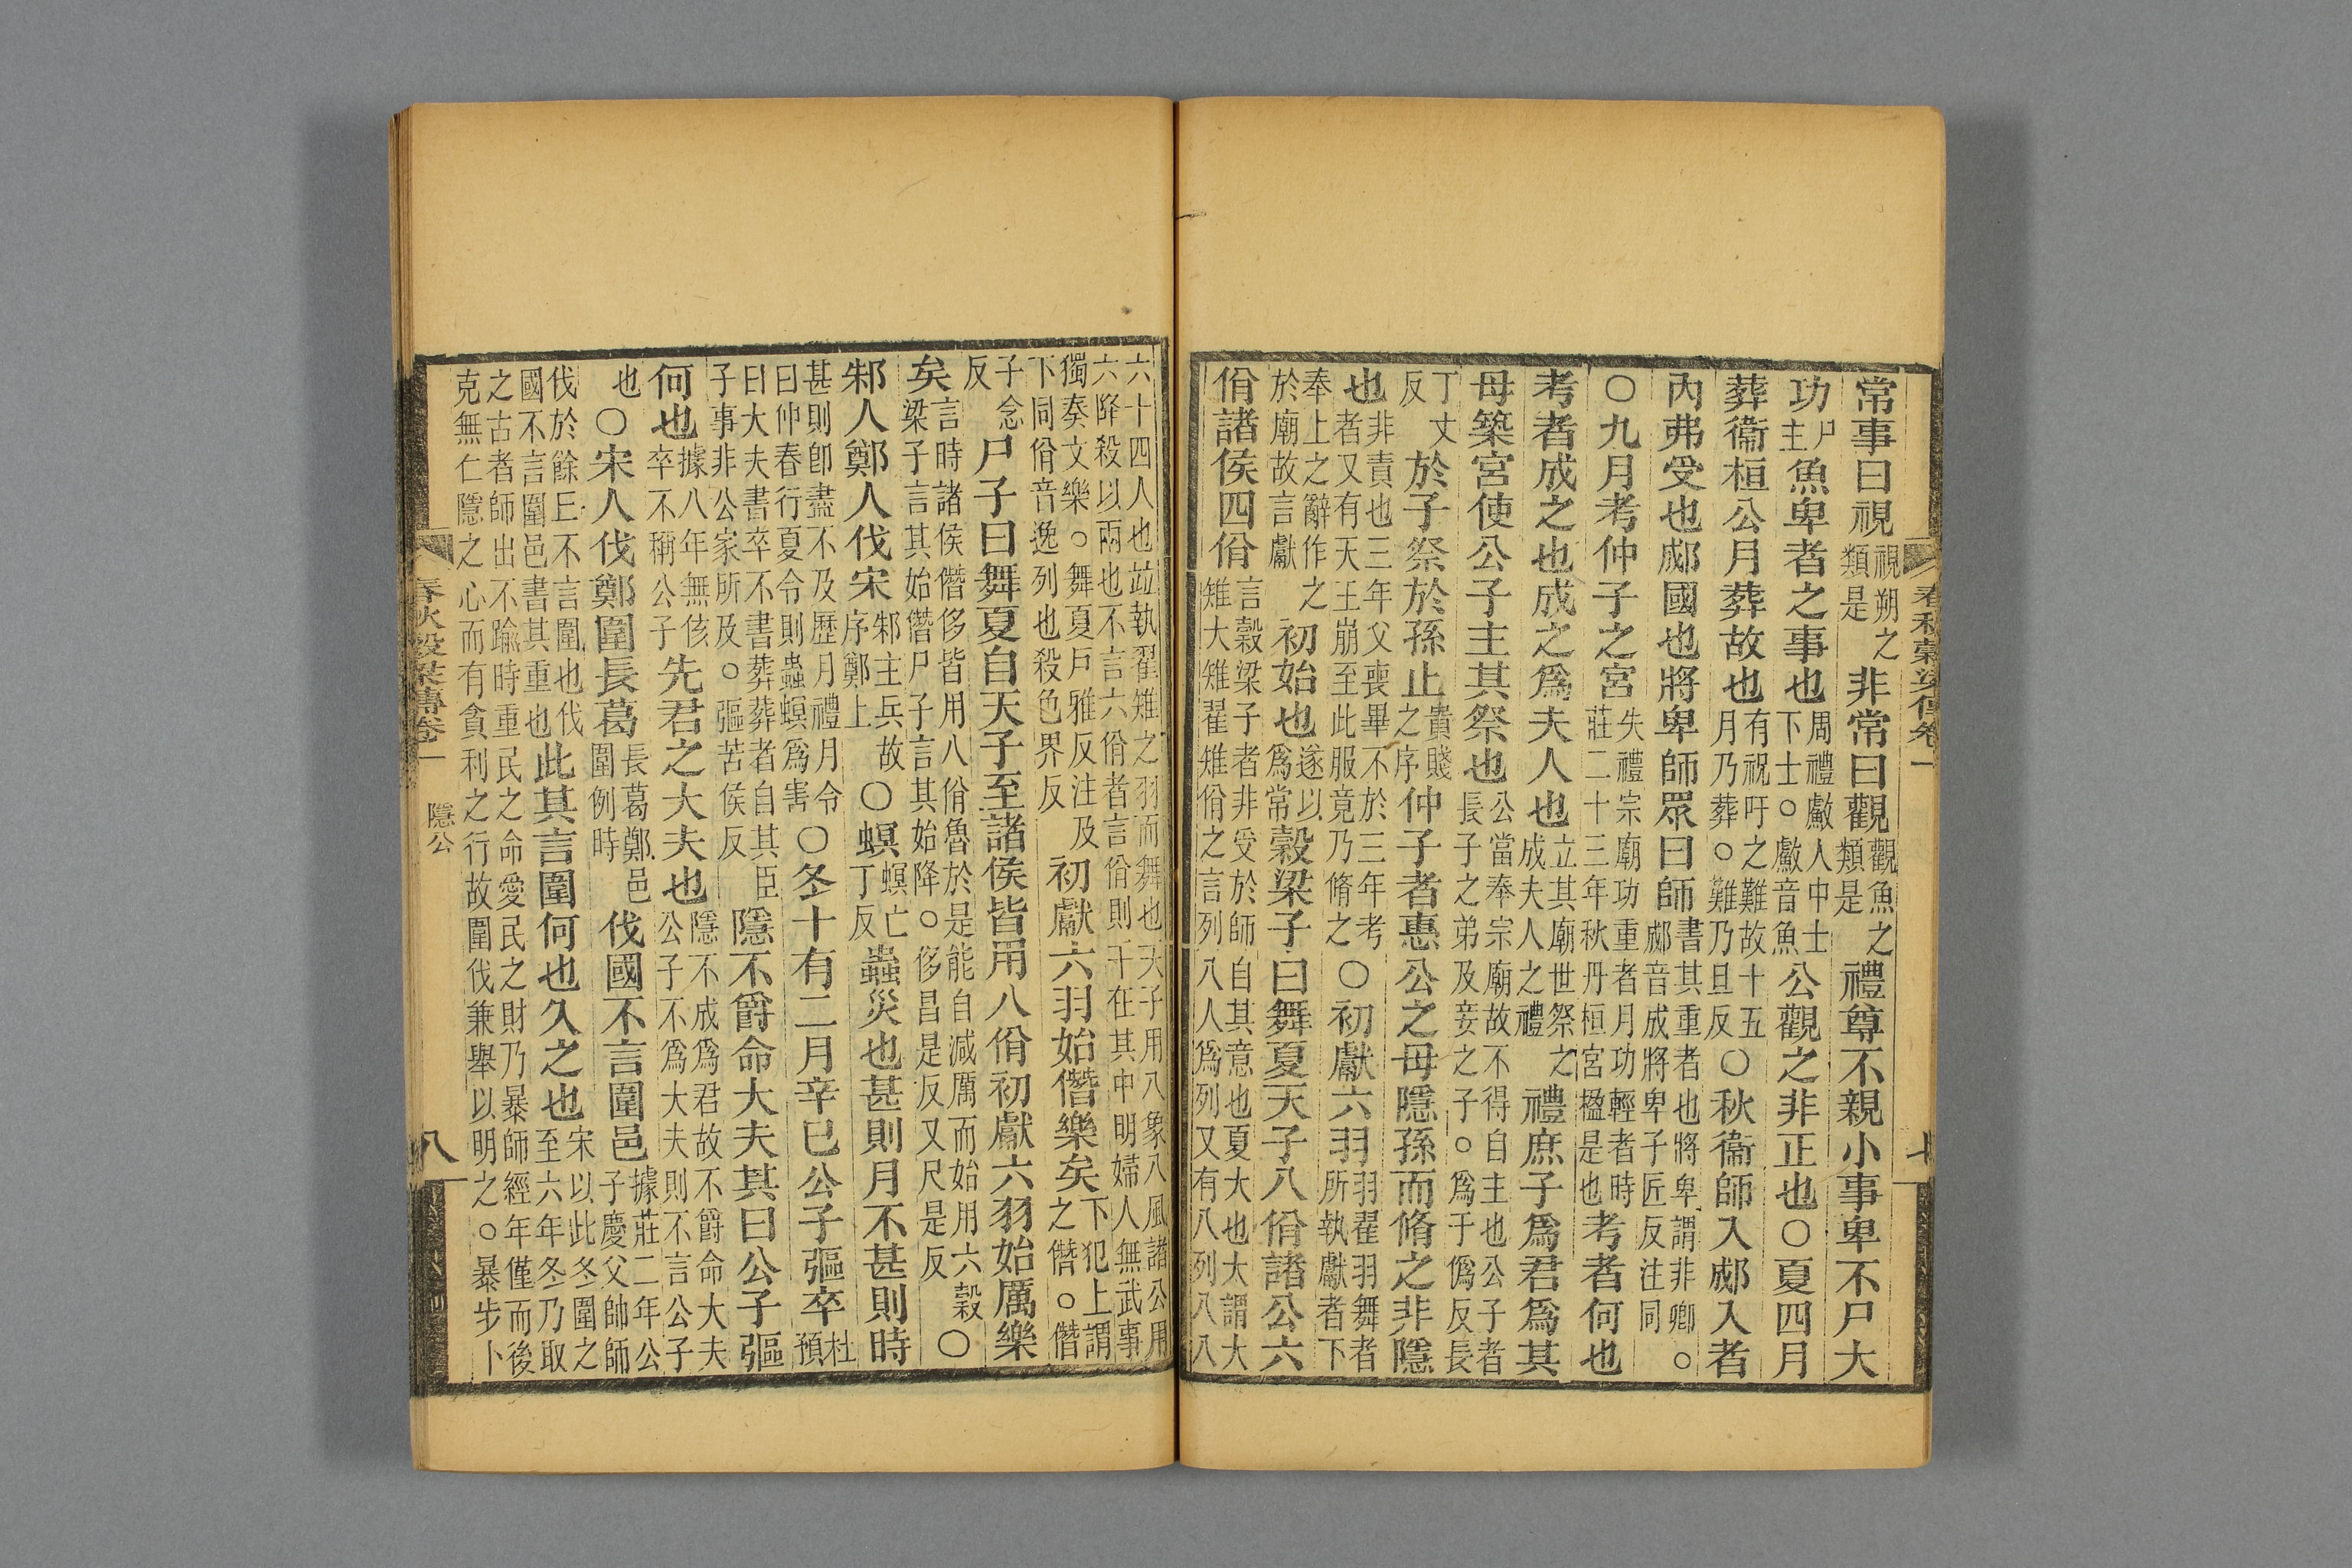 春秋穀梁傳卷一 七
常事曰視視朔之類是非常曰觀觀魚之類是禮尊不親小事卑不尸大
功尸主魚卑者之事也周禮䱷人中士下士○䱷音魚公觀之非正也○夏四月
葬衞桓公月葬故也有祝吁之難故十五月乃葬○難乃旦反○秋衞師入郕入者
內弗受也郕國也將卑師眾曰師書其重者也將卑謂非卿○郕音成將卑子匠反注同
○九月考仲子之宮失禮宗廟功重者月功輕者時莊二十三年秋丹桓宮楹是也考者何也
考者成之也成之爲夫人也立其廟世祭之成夫人之禮禮庶子爲君爲其
母築宮使公子主其祭也公當奉宗廟故不得自主也公子者長子之弟及妾之子○爲于僞反長
丁丈反於子祭於孫止貴賤之序仲子者惠公之母隱孫而脩之非隱
也非責也三年父喪畢不於三年考者又有天王崩至此服竟乃脩之○初獻六羽羽翟羽舞者所執獻者下
奉上之辭作之於廟故言獻初始也遂以爲常穀梁子曰舞夏天子八佾諸公六
佾諸侯四佾言穀梁子者非受於師自其意也夏大也大謂大雉大雉翟雉佾之言列八人爲列又有八列八八
六十四人也並執翟雉之羽而舞也天子用八象八風諸公用六降殺以兩也不言六佾者言佾則干在其中明婦人無武事
獨奏文樂○舞夏戶雅反注及下同佾音逸列也殺色界反初獻六羽始僭樂矣下犯上謂之僭○僭
子念反尸子曰舞夏自天子至諸侯皆用八佾初獻六羽始厲樂
矣言時諸侯僭侈皆用八佾魯於是能自減厲而始用六穀梁子言其始僭尸子言其始降○侈昌是反又尺是反○
邾人鄭人伐宋邾主兵故序鄭上○螟螟亡丁反蟲災也甚則月不甚則時
甚則卽盡不及歷月禮月令曰仲春行夏令則蟲螟爲害○冬十有二月辛巳公子彄卒杜預
曰大夫書卒不書葬葬者自其臣子事非公家所及○彄苦侯反隱不爵命大夫其曰公子彄
何也據八年無侅卒不稱公子先君之大夫也隱不成爲君故不爵命大夫公子不爲大夫則不言公子
也○宋人伐鄭圍長葛長葛鄭邑圍例時伐國不言圍邑據莊二年公子慶父帥師
伐於餘丘不言圍也伐國不言圍邑書其重也此其言圍何也久之也宋以此冬圍之至六年冬乃取
之古者師出不踰時重民之命愛民之財乃暴師經年僅而後克無仁隱之心而有貪利之行故圍伐兼舉以明之○暴步卜
春秋穀梁傳卷一 隱公 八